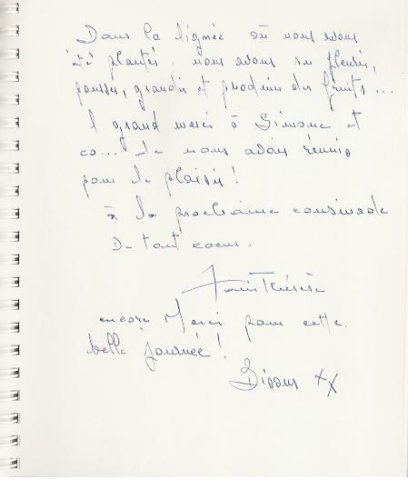 Dans la lignée où nous avons
été plantés, nous avons su fleurir,
pousser, grandir et produire des fruits...
1 grand merci à Simone et
co... de nous avoir réunis
pour le plaisir!
à la prochaine cousinade
De tout coeur.
Thérèse
encore Merci pour cette
bella journée!
Bisous xx